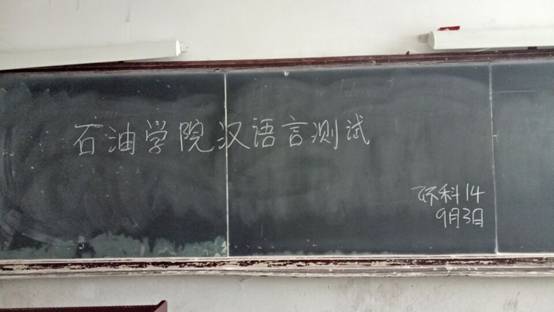 石油学院汉语言测试
环科14
9月3日